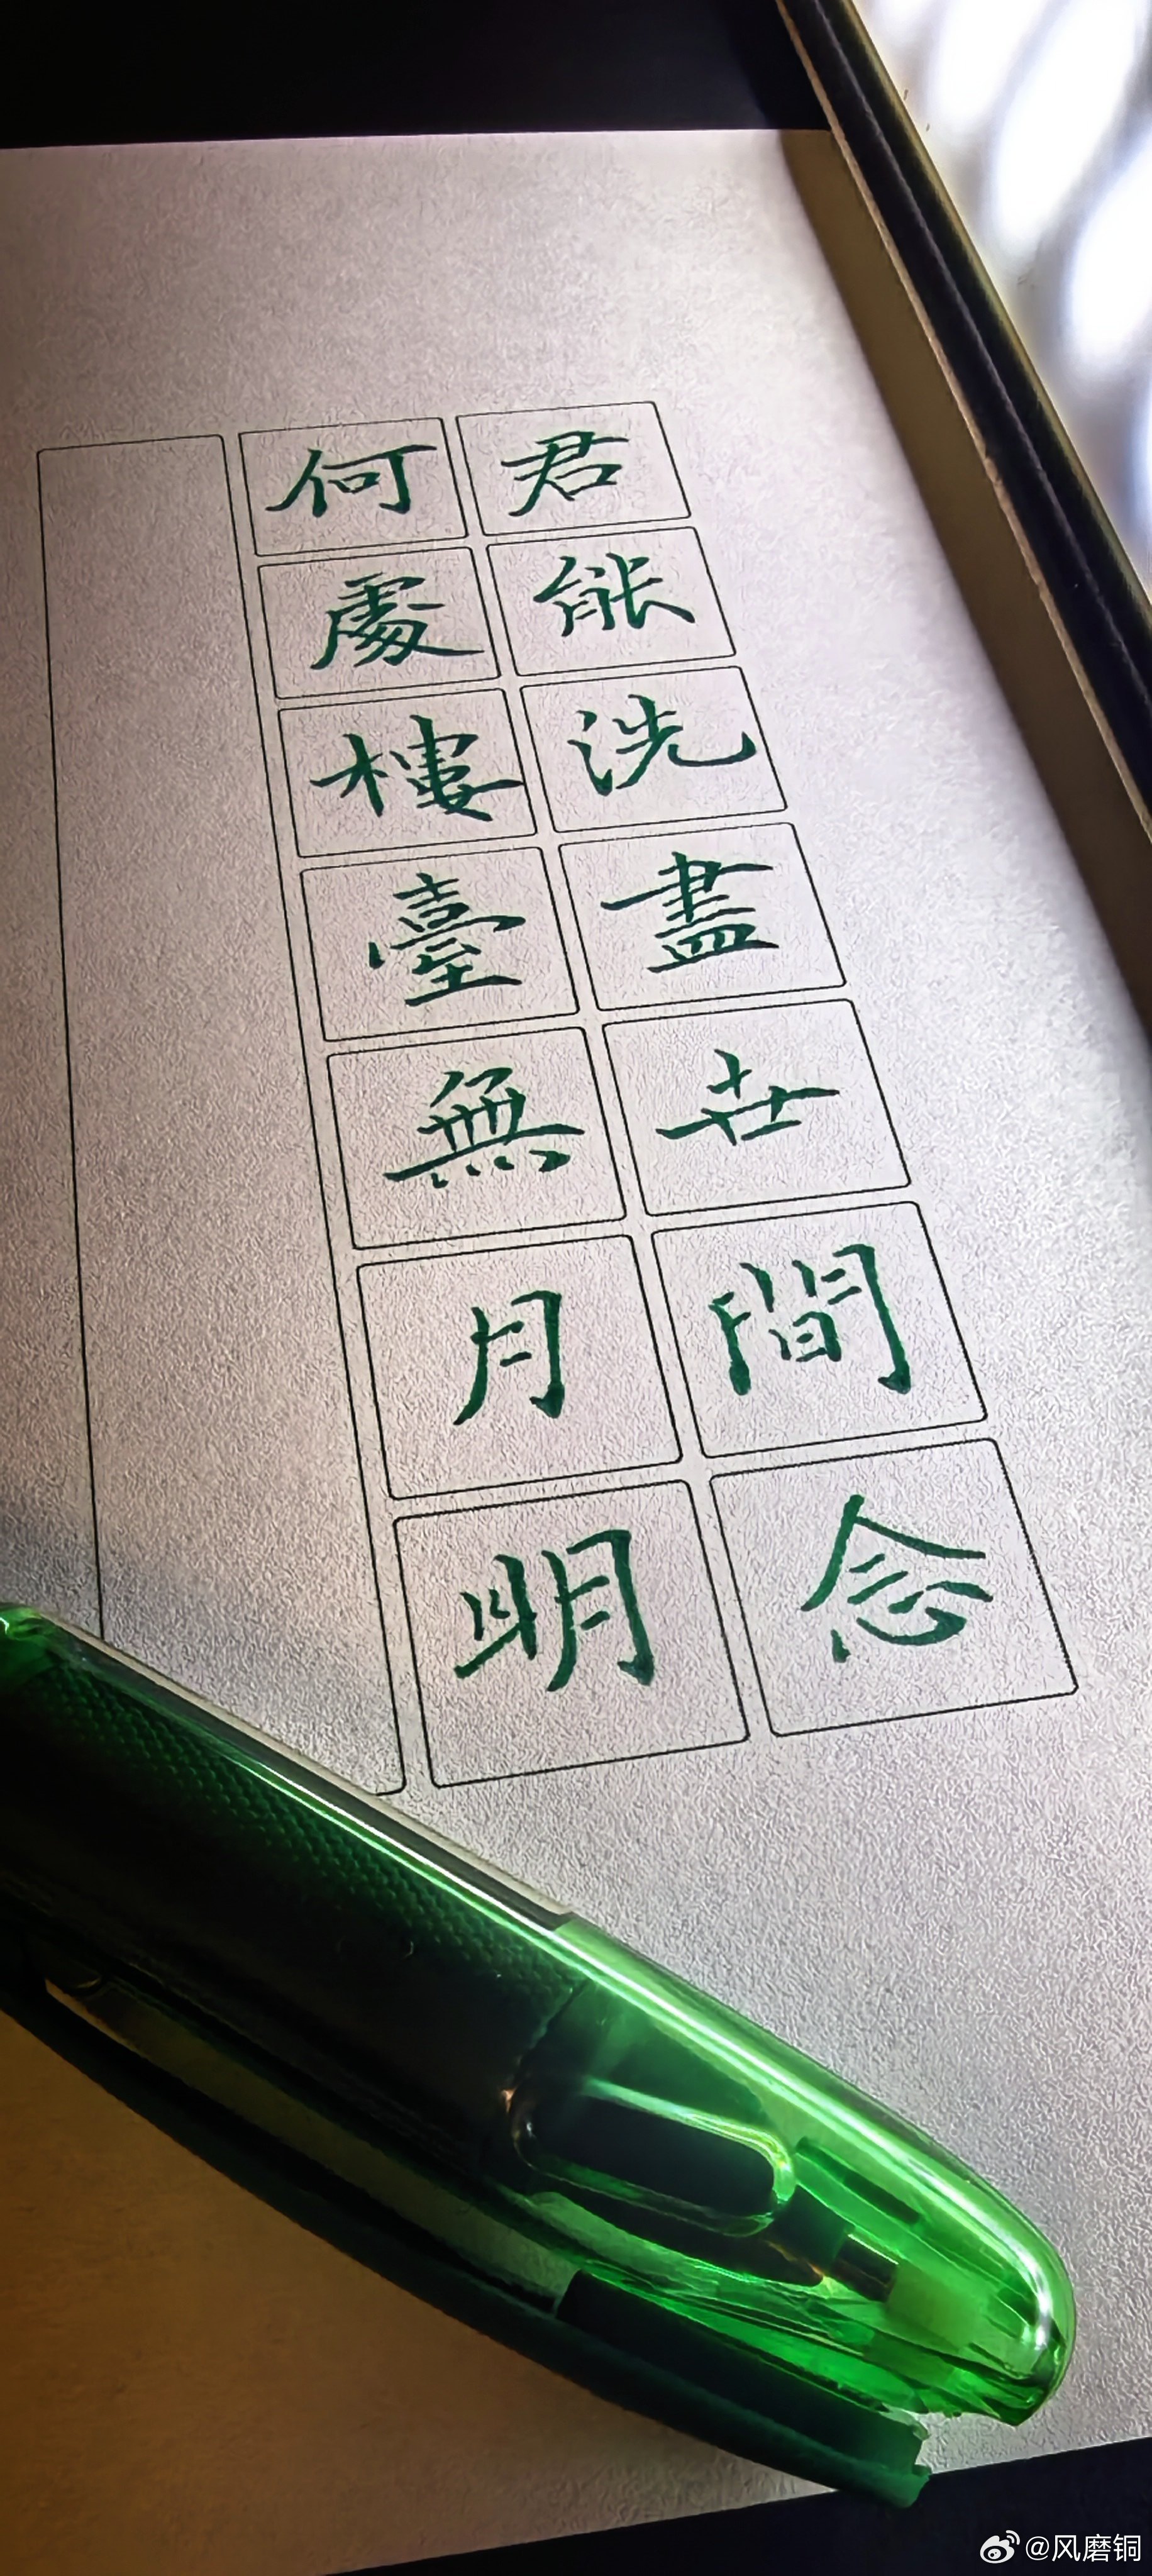 君能洗盡世間念
何處樓臺無月明
@风磨铜